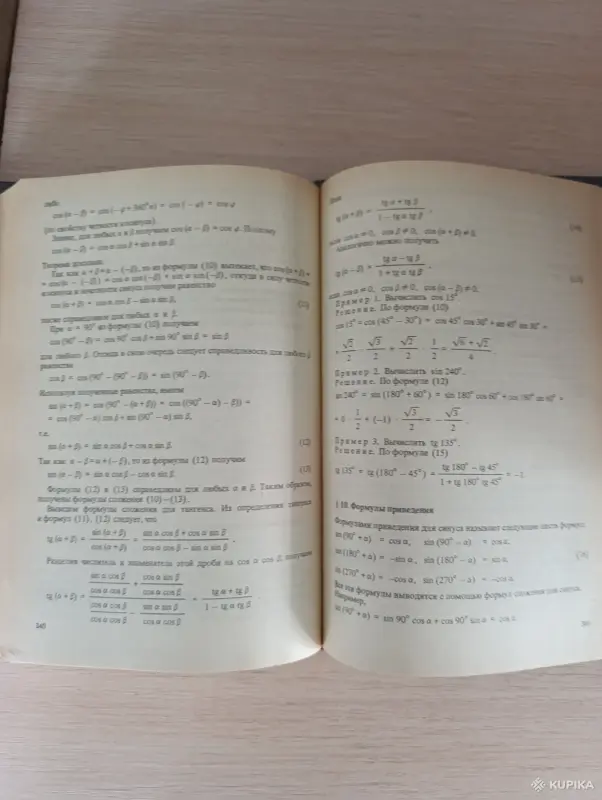 либо
cos (α − β) = cos (−φ + 360° n) = cos (−φ) = cos φ
(по свойству четности косинуса).
Значит, для любых α и β получаем cos (α − β) = cos φ. Поэтому
cos (α − β) = cos α cos β + sin α sin β.
Теорема доказана.
Так как α + β = α − (−β), то из формулы (10) вытекает, что cos (α + β) =
= cos (α − (−β)) = cos α cos (−β) + sin α sin (−β), откуда в силу четности
косинуса и нечетности синуса получим равенство
cos (α + β) = cos α cos β − sin α sin β, (11)
также справедливое для любых α и β.
При α = 90° из формулы (10) получаем
cos (90° − β) = cos 90° cos β + sin 90° sin β = sin β
для любого β. Отсюда в свою очередь следует справедливость для любого β
равенства
cos β = cos (90° − (90° − β)) = sin (90° − β).
Используя полученные равенства, имеем
sin (α + β) = cos (90° − (α + β)) = cos ((90° − α) − β) =
= cos (90° − α) cos β + sin (90° − α) sin β,
т.е.
sin (α + β) = sin α cos β + cos α sin β. (12)
Так как α − β = α + (−β), то из формулы (12) получим
sin (α − β) = sin α cos β − cos α sin β. (13)
Формулы (12) и (13) справедливы для любых α и β. Таким образом,
получены формулы сложения (10)–(13).
Выведем формулы сложения для тангенса. Из определения тангенса
и формул (11), (12) следует, что
tg (α + β) = sin (α + β) / cos (α + β) = (sin α cos β + cos α sin β) / (cos α cos β − sin α sin β).
Разделив числитель и знаменатель этой дроби на cos α cos β, получим
tg (α + β) = (sin α cos β / cos α cos β + cos α sin β / cos α cos β) / (cos α cos β / cos α cos β − sin α sin β / cos α cos β) = (tg α + tg β) / (1 − tg α tg β).
tg (α + β) = (tg α + tg β) / (1 − tg α tg β), (14)
cos α ≠ 0, cos β ≠ 0, cos (α + β) ≠ 0.
Аналогично можно получить
tg (α − β) = (tg α − tg β) / (1 + tg α tg β), (15)
cos α ≠ 0, cos β ≠ 0, cos (α − β) ≠ 0.
Пример 1. Вычислить cos 15°.
Решение. По формуле (10)
cos 15° = cos (45° − 30°) = cos 45° cos 30° + sin 45° sin 30° =
= √2/2 · √3/2 + √2/2 · 1/2 = (√6 + √2)/4.
Пример 2. Вычислить sin 240°.
Решение. По формуле (12)
sin 240° = sin (180° + 60°) = sin 180° cos 60° + cos 180° sin 60° =
= 0 · 1/2 + (−1) · √3/2 = − √3/2.
Пример 3. Вычислить tg 135°.
Решение. По формуле (15)
tg 135° = tg (180° − 45°) = (tg 180° − tg 45°) / (1 + tg 180° tg 45°) = −1.
§ 10. Формулы приведения
Формулами приведения для синуса называют следующие шесть формул:
sin (90° + α) = cos α, sin (90° − α) = cos α,
sin (180° + α) = −sin α, sin (180° − α) = sin α, (16)
sin (270° + α) = −cos α, sin (270° − α) = −cos α.
Все эти формулы выводятся с помощью формул сложения для синуса.
Например,
sin (90° + α) = sin 90° cos α + cos 90° sin α = cos α.
KUPIKA